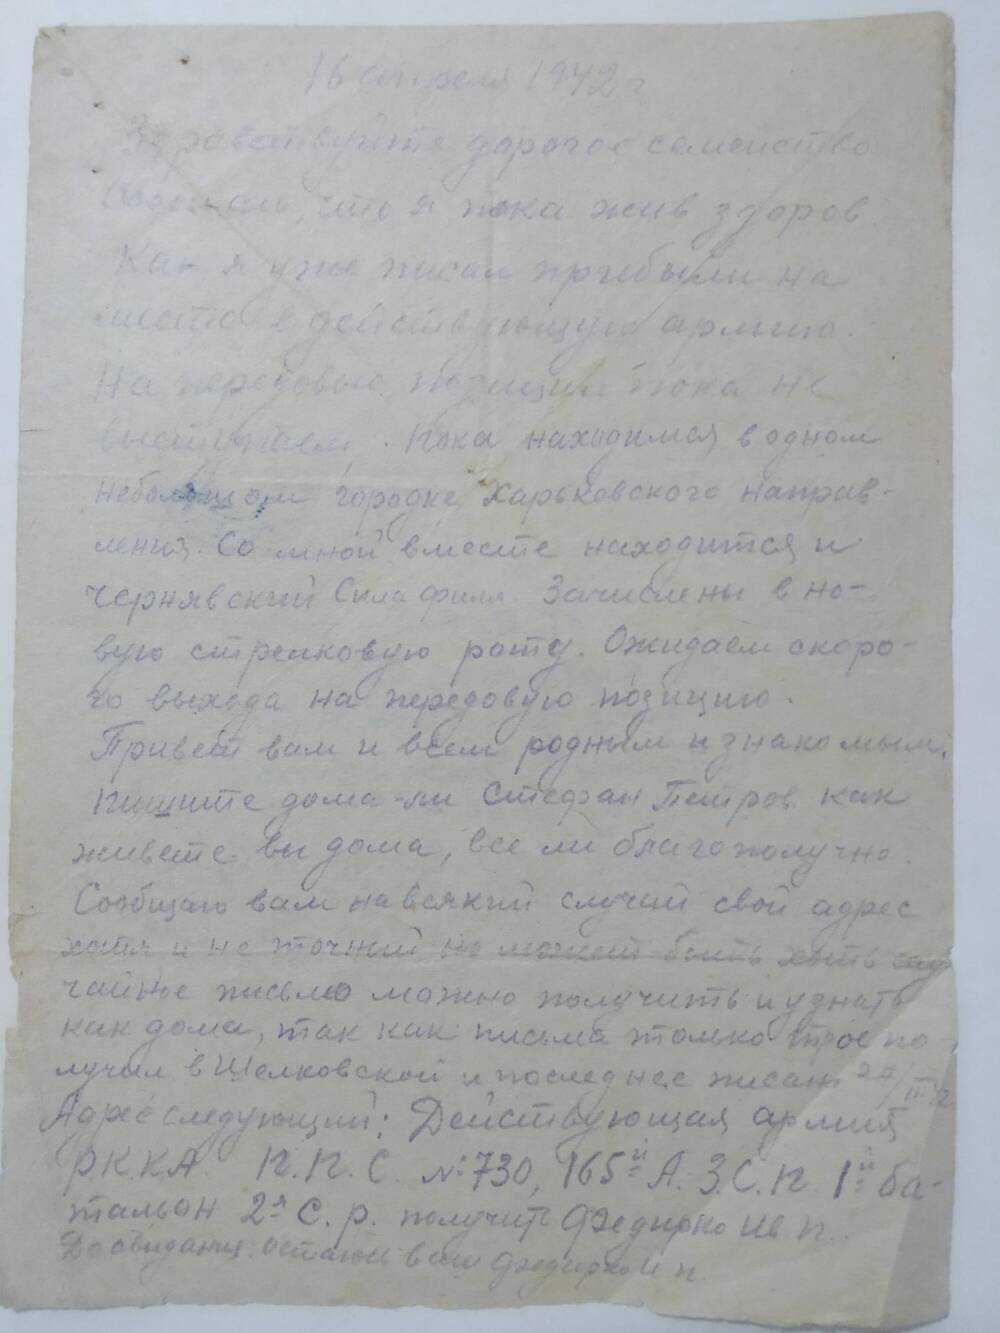 16 апреля 1942 г
Здравствуйте дорогое семейство
Сообщаю, что я пока жив здоров.
Как я уже писал прибыли на
место в действующую армию.
На передовые позиции пока не
выступаем. Пока находимся в одном
небольшом городке, харьковского направ-
ления. Со мной вместе находится и
Чернявский Сила филл. Зачислены в но-
вую стрелковую роту. Ожидаем скоро-
го выхода на передовую позицию.
Привет вам и всем родным и знакомым.
Пишите дома-ли Стефан Петров как
живете вы дома, все ли благополучно.
Сообщаю вам на всякий случай свой адрес
хотя и не точный но может быть хоть слу
чайное письмо можно получить и узнать
как дома, так как письма только трое по-
лучил в Шелковской и последнее писан
Адрес следующий: Действующая армия
Р.К.К.А. П.П.С. №730, 165й А.З.С.П. 1й ба-
тальон 2я с.р. получит Федирко
До свидания. остаюсь ваш Федирко И п.